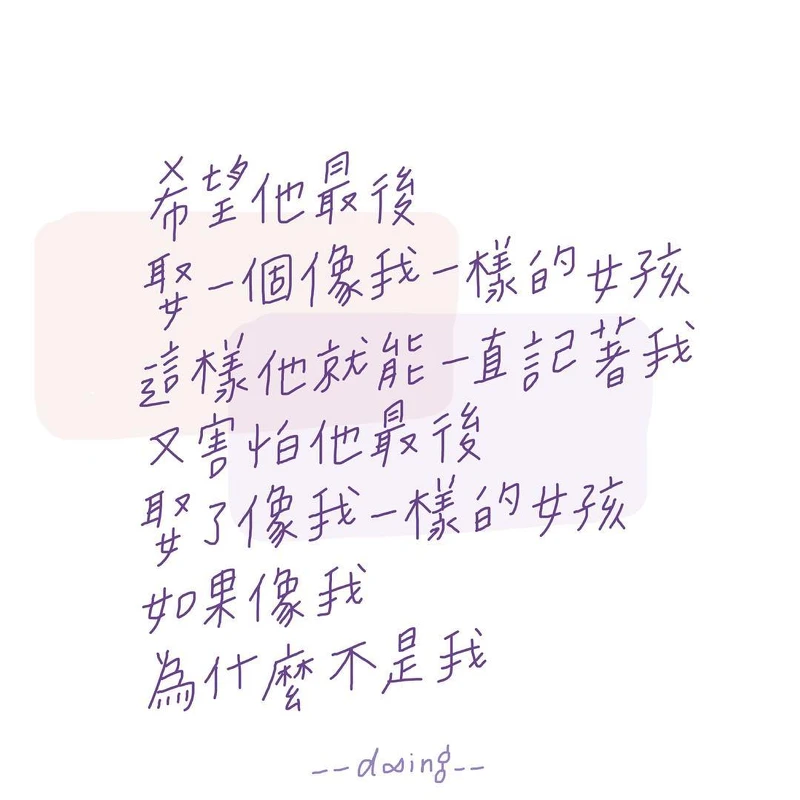 希望他最後
娶一個像我一樣的女孩
這樣他就能一直記著我
又害怕他最後
娶了像我一樣的女孩
如果像我
為什麼不是我
--dosing--